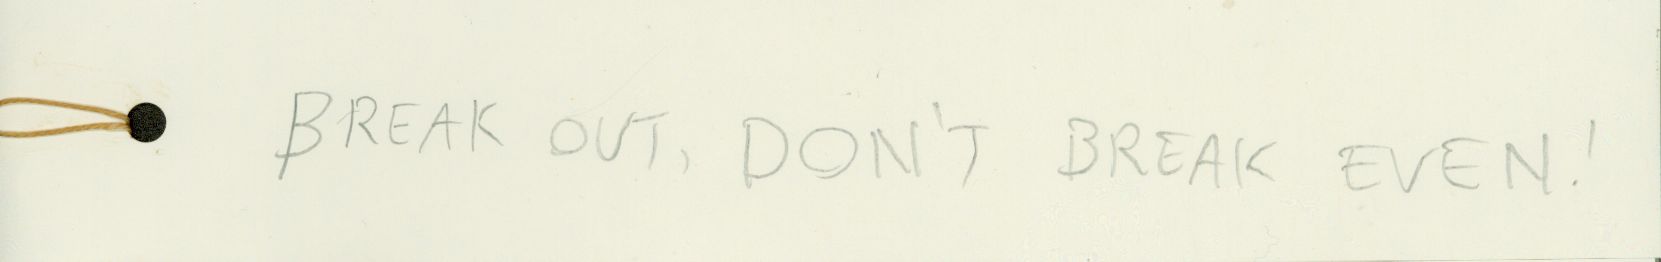 BREAK OUT, DON'T BREAK EVEN!